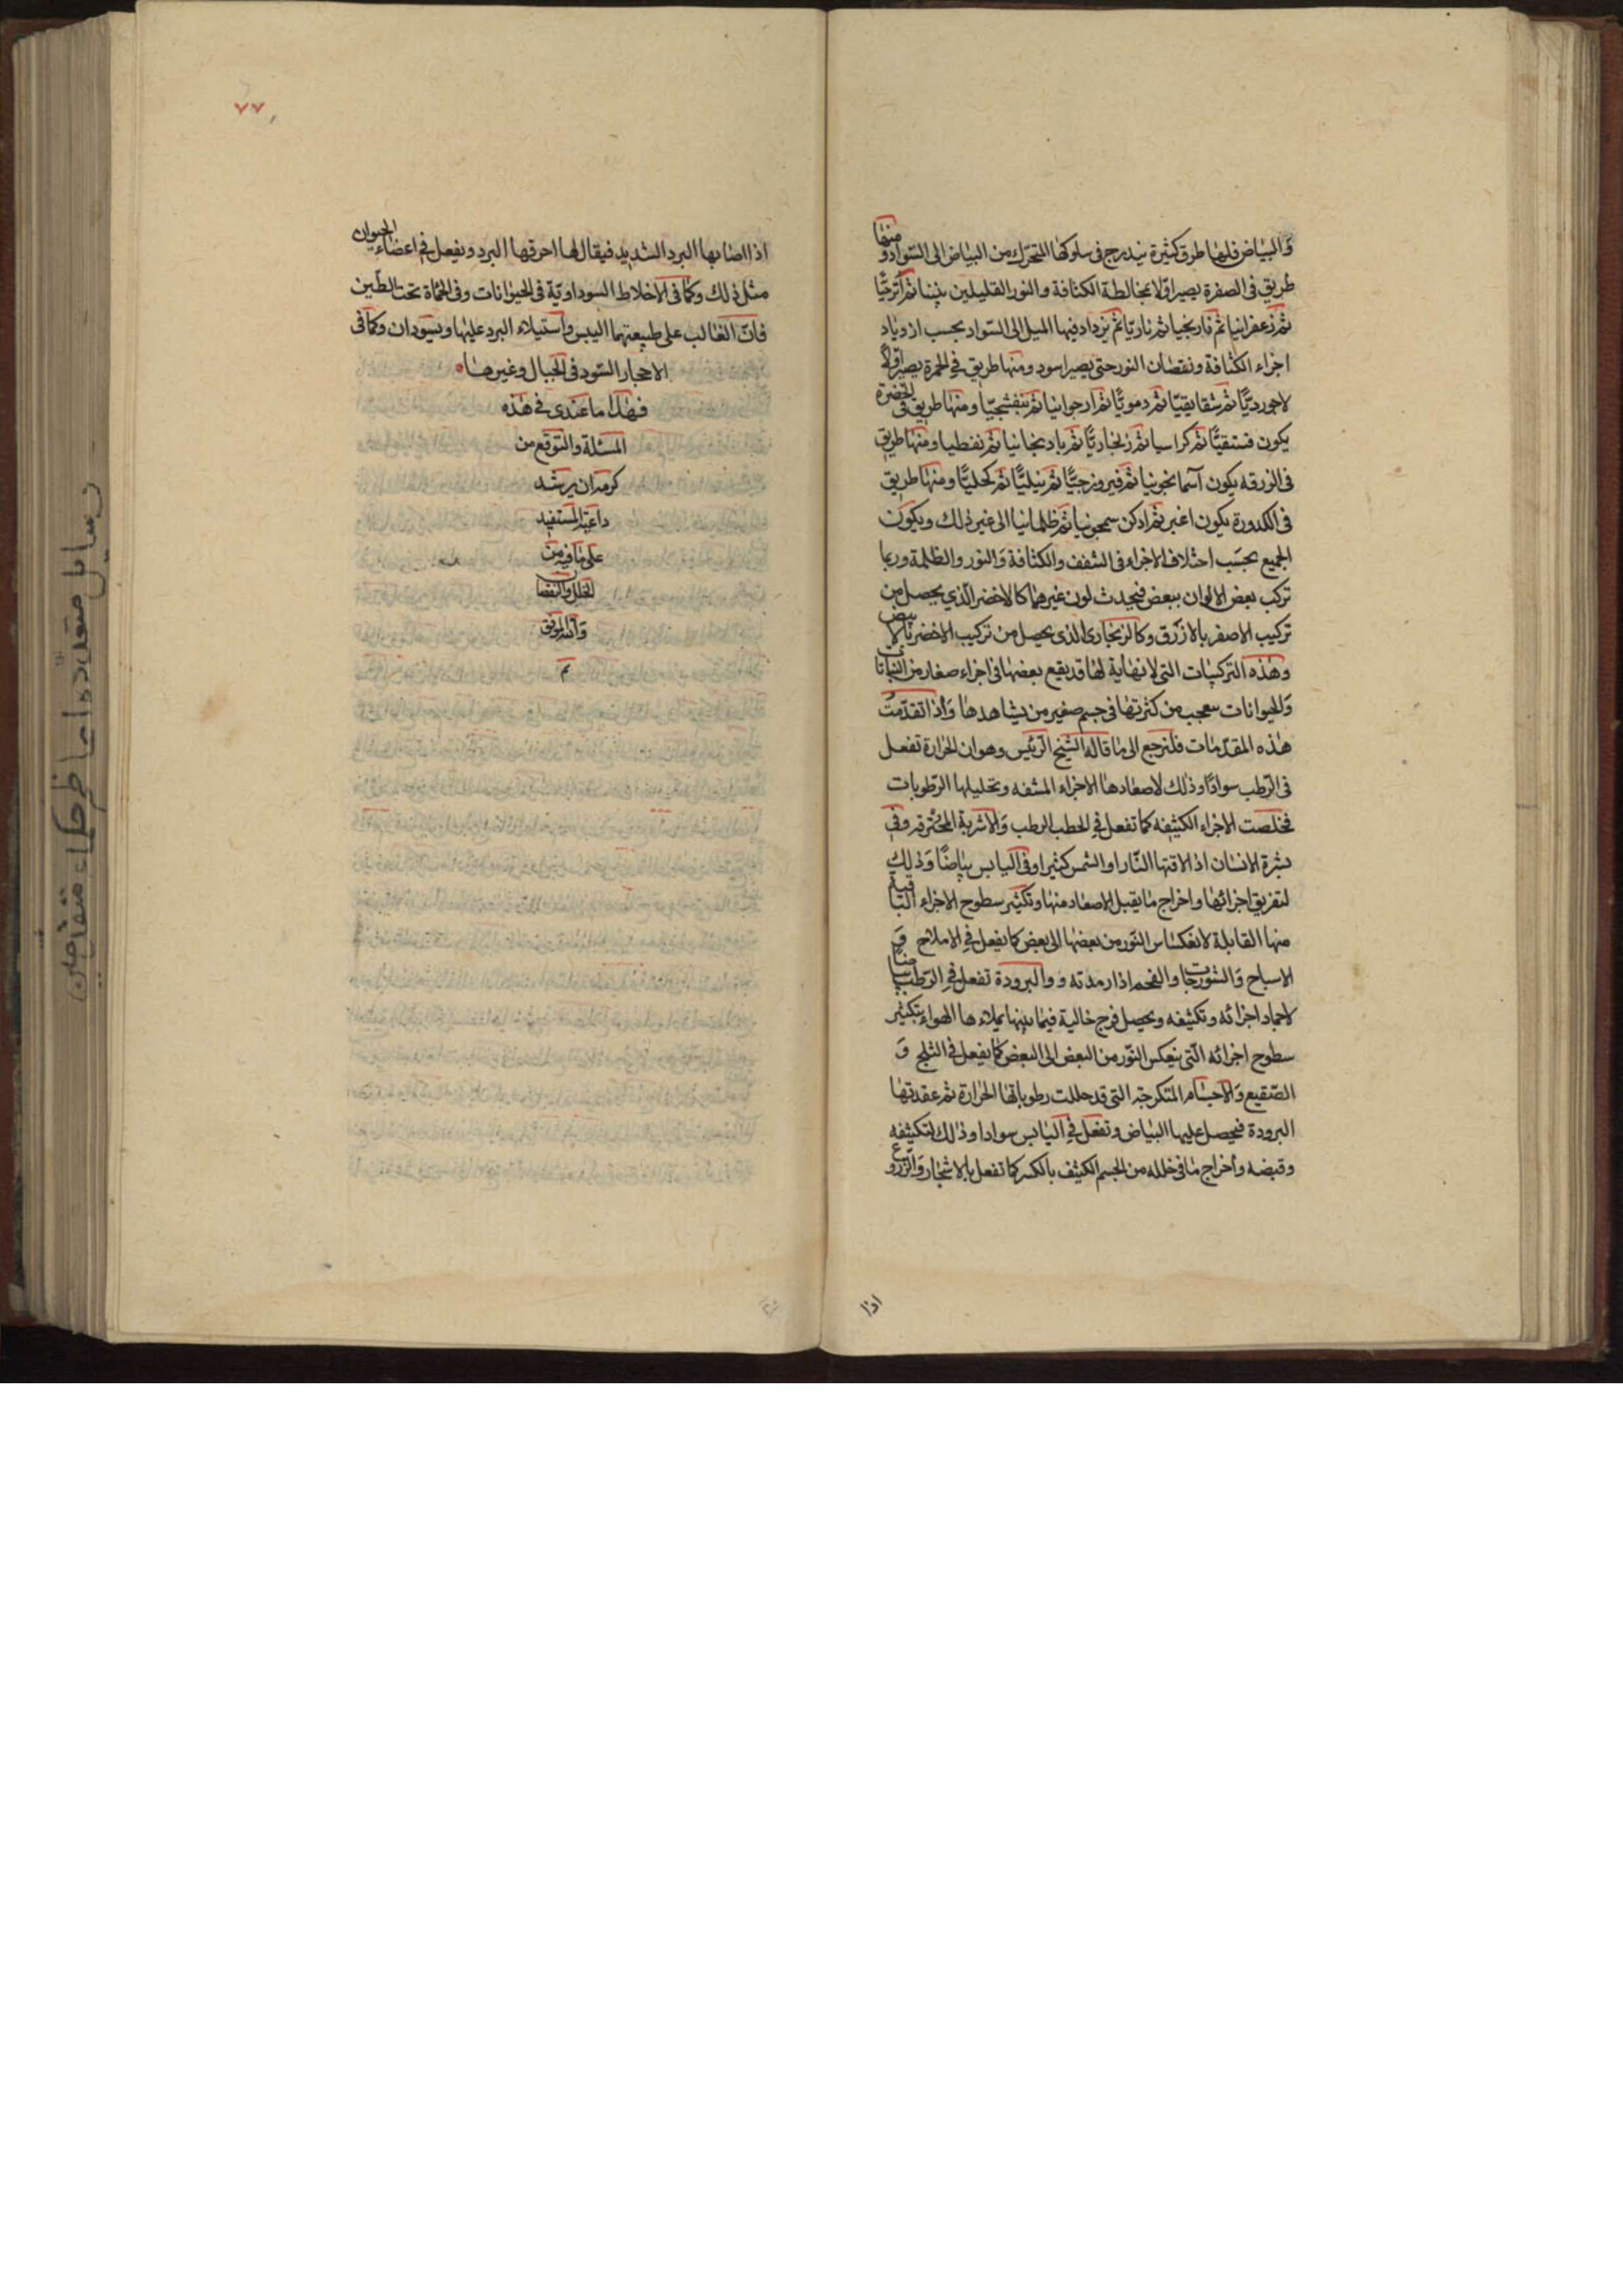 والبياض فلها طرق كثيرة يندرج في سلوكها المتحرك من البياض الى السواد ومنها
طريق في الصفرة يصير اولا بمخالطة الكثافة والنور القليلين تبنيا ثم اترجيا
ثم زعفرانيا ثم نارنجيا ثم ناريا ثم يزداد فيها الميل الى السواد بحسب ازدياد
اجزاء الكثافة ونقصان النور حتى يصير اسود ومنها طريق في الحمرة يصير اولا
لاجورديا ثم شقايقيا ثم دمويا ثم ارجوانيا ثم بنفشجيا ومنها طريق في الخضرة
يكون فستقيا ثم كراسيا ثم زنجاريا ثم بادنجانيا ثم نفطيا ومنها طريق
في الزرقه يكون آسمانجونيا ثم فيروزجيا ثم نيليا ثم كحليا ومنها طريق
في الكدورة يكون اغبر ثم ادكن ثم ظلمانيا الى غير ذلك ويكون
الجميع بحسب اختلاف الاجزاء في الشفف والكثافة والنور والظلمة وربما
تركب بعض الالوان ببعض فيحدث لون غيرهما كالاخضر الذي يحصل من
تركيب الاصفر بالازرق وكالزنجاري الذي يحصل من تركيب الاخضر بالابيض
وهذه التركيبات التي لا نهاية لها قد يقع بعضها في اجزاء صغار من النباتات
والحيوانات يتعجب من كثرتها في جسم صغير من يشاهدها واذا تقدمت
هذه المقدمات فلنرجع الى ما قاله الشيخ الرئيس وهو ان الحرارة تفعل
في الرطب سوادا وذلك لاصعادها الاجزاء المشفه وتحليلها الرطوبات
فخلصت الاجزاء الكثيفه كما تفعل في الحطب الرطب والاشربة المحترقه وفي
بشرة الانسان اذا لاقتها النار او الشمس كثيرا وفي اليابس بياضا وذلك
لتفريق اجزائها واخراج ما يقبل الاصعاد منها وتكثير سطوح الاجزاء الباقية
منها القابلة لانعكاس النور من بعضها الى بعض كما يفعل في الاملاح و
الاسباخ والشورجات والفحم اذا رمدته و والبرودة تفعل في الرطب بياضا
لاجماد اجزائه وتكثيفه ويحصل فرج خالية فيما بينها يملاءها الهواء بتكثير
سطوح اجزائه التي ينعكس النور من البعض الى البعض كما يفعل في الثلج و
الصقيع والاجسام المتكرجة التي قد حللت رطوباتها الحرارة ثم عقدتها
البرودة فيحصل عليها البياض وتفعل في اليابس سوادا وذلك لتكثيفه
وقبضه واخراج ما في خلله من الجسم الكثيف بالكسر كما تفعل بالاشجار والزروع
اذا
٧٧
اذا اصابها البرد الشديد فيقال لها احرقها البرد ويفعل في اعضاء الحيوان
مثل ذلك وكما في الاخلاط السوداوية في الحيوانات وفي الحماة تحت الطين
فان الغالب على طبيعتهما اليبس واستيلاء البرد عليها ويسودان وكما في
الاحجار السود في الجبال وغيرها
فهذا ما عندي في هذه
المسئلة والتوقع من
كرمه ان يرشد
داعيه المستفيد
على ما فيه من
الخلل والنقصان
والله الموفق
تم
رسايل متعدده اعاظم حكماء متقدمين